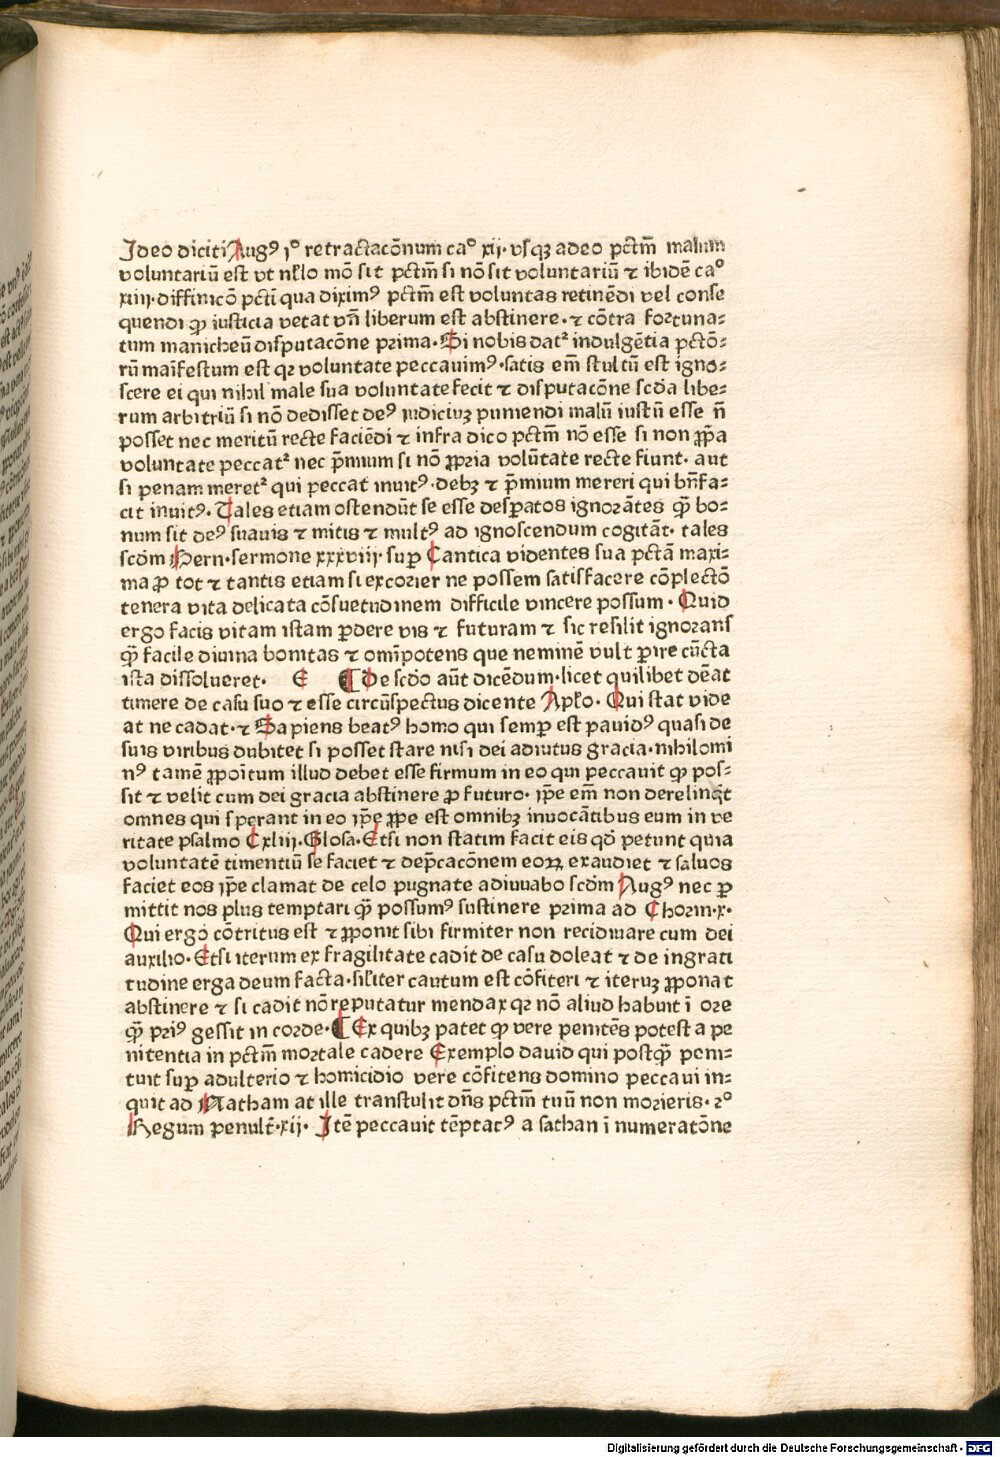 Ideo diciti Augꝰ iº retractacōnum caº xij· vſqꝫ adeo pctm̄ malum
voluntariū eſt vt nłlo mō ſit pctm̄ ſi nō ſit voluntariū ⁊ ibidē caº
xiiij·diffinicō pcti qua diximꝰ pctm̄ eſt voluntas retinēdi vel conſe
quendi ꝙ iuſticia vetat vn̄ liberum eſt abſtinere·⁊ cōtra fortuna⸗
tum manicheū diſputacōne prima·Si nobis datᷣ indulgētia pctō⸗
rū maīfeſtum eſt qꝛ voluntate peccauimꝰ·ſatis em̄ ſtultū eſt igno⸗
ſcere ei qui nihil male ſua voluntate fecit ⁊ diſputacōne ſcd̄a libe⸗
rum arbitriū ſi nō dediſſet deꝰ iudiciuꝫ puniendi malū iuſtū eſſe n̄
poſſet nec meritū recte faciēdi ⁊ infra dico pctm̄ nō eſſe ſi non ꝓp̄a
voluntate peccatᷣ nec p̄mium ſi nō ꝓpria volūtate recte fiunt· aut
ſi penam meretᷣ qui peccat inuitꝰ·debꝫ ⁊ p̄mium mereri qui bn̄fa⸗
cit inuitꝰ·Tales etiam oſtendūt ſe eſſe deſꝑatos ignorātes ꝙ̄ bo⸗
num ſit deꝰ ſuauis ⁊ mitis ⁊ multꝰ ad ignoſcendum cogitāt· tales
ſcd̄m Bern·ſermone xxxviij·ſuꝑ Cantica videntes ſua pctā maxi⸗
ma ꝓ tot ⁊ tantis etiam ſi excorier ne poſſem ſatiſfacere cōplectō
tenera vita delicata cōſuetudinem difficile vincere poſſum· Quid
ergo facis vitam iſtam ꝑdere vis ⁊ futuram ⁊ ſic reſilit ignorans
ꝙ̄ facile diuina bonitas ⁊ omīpotens que neminē vult ꝑire cūcta
iſta diſſolueret· E ¶ De ſcdo aūt dicēdum·licet quilibet dēat
timere de caſu ſuo ⁊ eſſe circūſpectus dicente Apło· Qui ſtat vide
at ne cadat·⁊ Sapiens beatꝰ homo qui ſemꝑ eſt pauidꝰ quaſi de
ſuis viribus dubitet ſi poſſet ſtare niſi dei adiutus gracia·nihilomi
nꝰ tamē ꝓpoītum illud debet eſſe firmum in eo qui peccauit ꝙ poſ⸗
ſit ⁊ velit cum dei gracia abſtinere ꝓ futuro· ip̄e em̄ non derelinq̄t
omnes qui ſperant in eo ip̄e ꝓpe eſt omnibꝫ inuocātibus eum in ve
ritate pſalmo Cxliij·Gloſa·Etſi non ſtatim facit eis qd̄ petunt quia
voluntatē timentiū ſe faciet ⁊ dep̄cacōnem eoꝝ exaudiet ⁊ ſaluos
faciet eos ip̄e clamat de celo pugnate adiuuabo ſcd̄m Augꝰ nec ꝑ
mittit nos plus temptari ꝙ̄ poſſumꝰ ſuſtinere prima ad Chorin·x·
Qui ergo cōtritus eſt ⁊ ꝓponit ſibi firmiter non recidiuare cum dei
auxilio·Etſi iterum ex fragilitate cadit de caſu doleat ⁊ de ingrati
tudine erga deum facta·ſiliter cautum eſt cōfiteri ⁊ iteruꝫ ꝓponat
abſtinere ⁊ ſi cadit nō reputatur mendax qꝛ nō aliud habuit ī ore
ꝙ̄ priꝰ geſſit in corde·¶ Ex quibꝫ patet ꝙ vere penitēs poteſt a pe
nitentia in pctm̄ mortale cadere Exemplo dauid qui poſtꝙ̄ peni⸗
tuit ſuꝑ adulterio ⁊ homicidio vere cōfitens domino peccaui in⸗
quit ad Natham at ille tranſtulit dn̄s pctm̄ tuū non morieris· 2º
Regum penult̄·xij· Itē peccauit tēptatꝰ a ſathan ī numeratōne
Digitalisierung gefördert durch die Deutsche Forschungsgemeinschaft - DFG